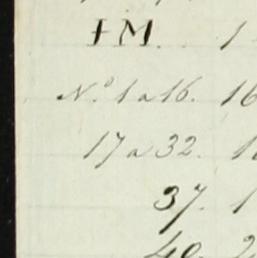 IM. 1
N.º 1 a 16. 16
17 a 32. 1
37. 1
40. 2